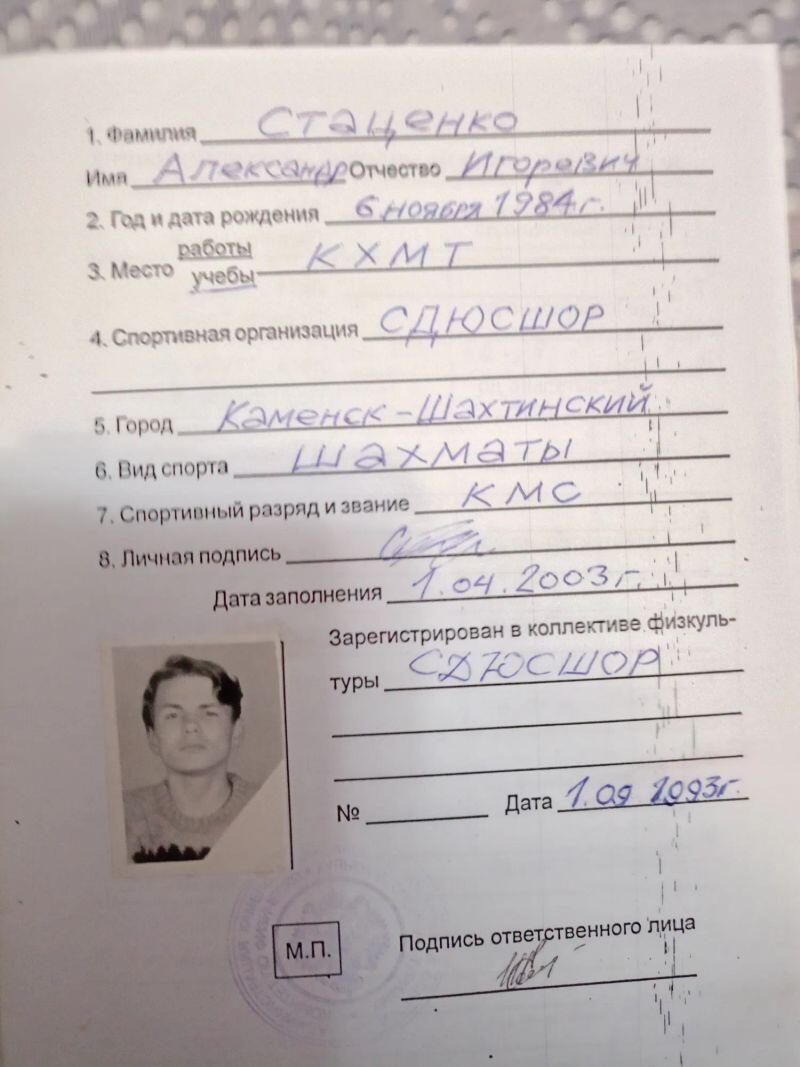 1. Фамилия Стаценко
Имя Александр Отчество Игоревич
2. Год и дата рождения 6 ноября 1984 г.
3. Место работы учебы КХМТ
4. Спортивная организация СДЮСШОР
5. Город Каменск-Шахтинский
6. Вид спорта шахматы
7. Спортивный разряд и звание КМС
8. Личная подпись
Дата заполнения 1.04.2003 г.
Зарегистрирован в коллективе физкуль-
туры СДЮСШОР
№ Дата 1.09 1993г.
М.П.
Подпись ответственного лица